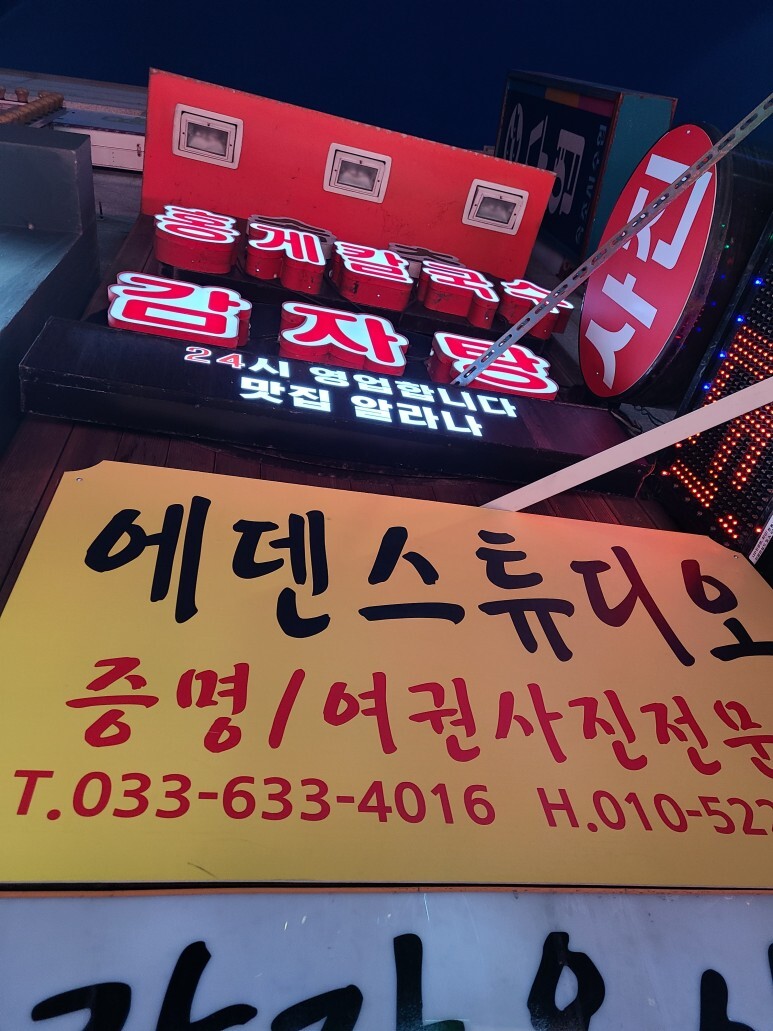 홍게칼국수
감자탕
24시 영업합니다
맛집 알라냐
사진
에덴스튜디오
증명/여권사진전문
T.033-633-4016 H.010-522